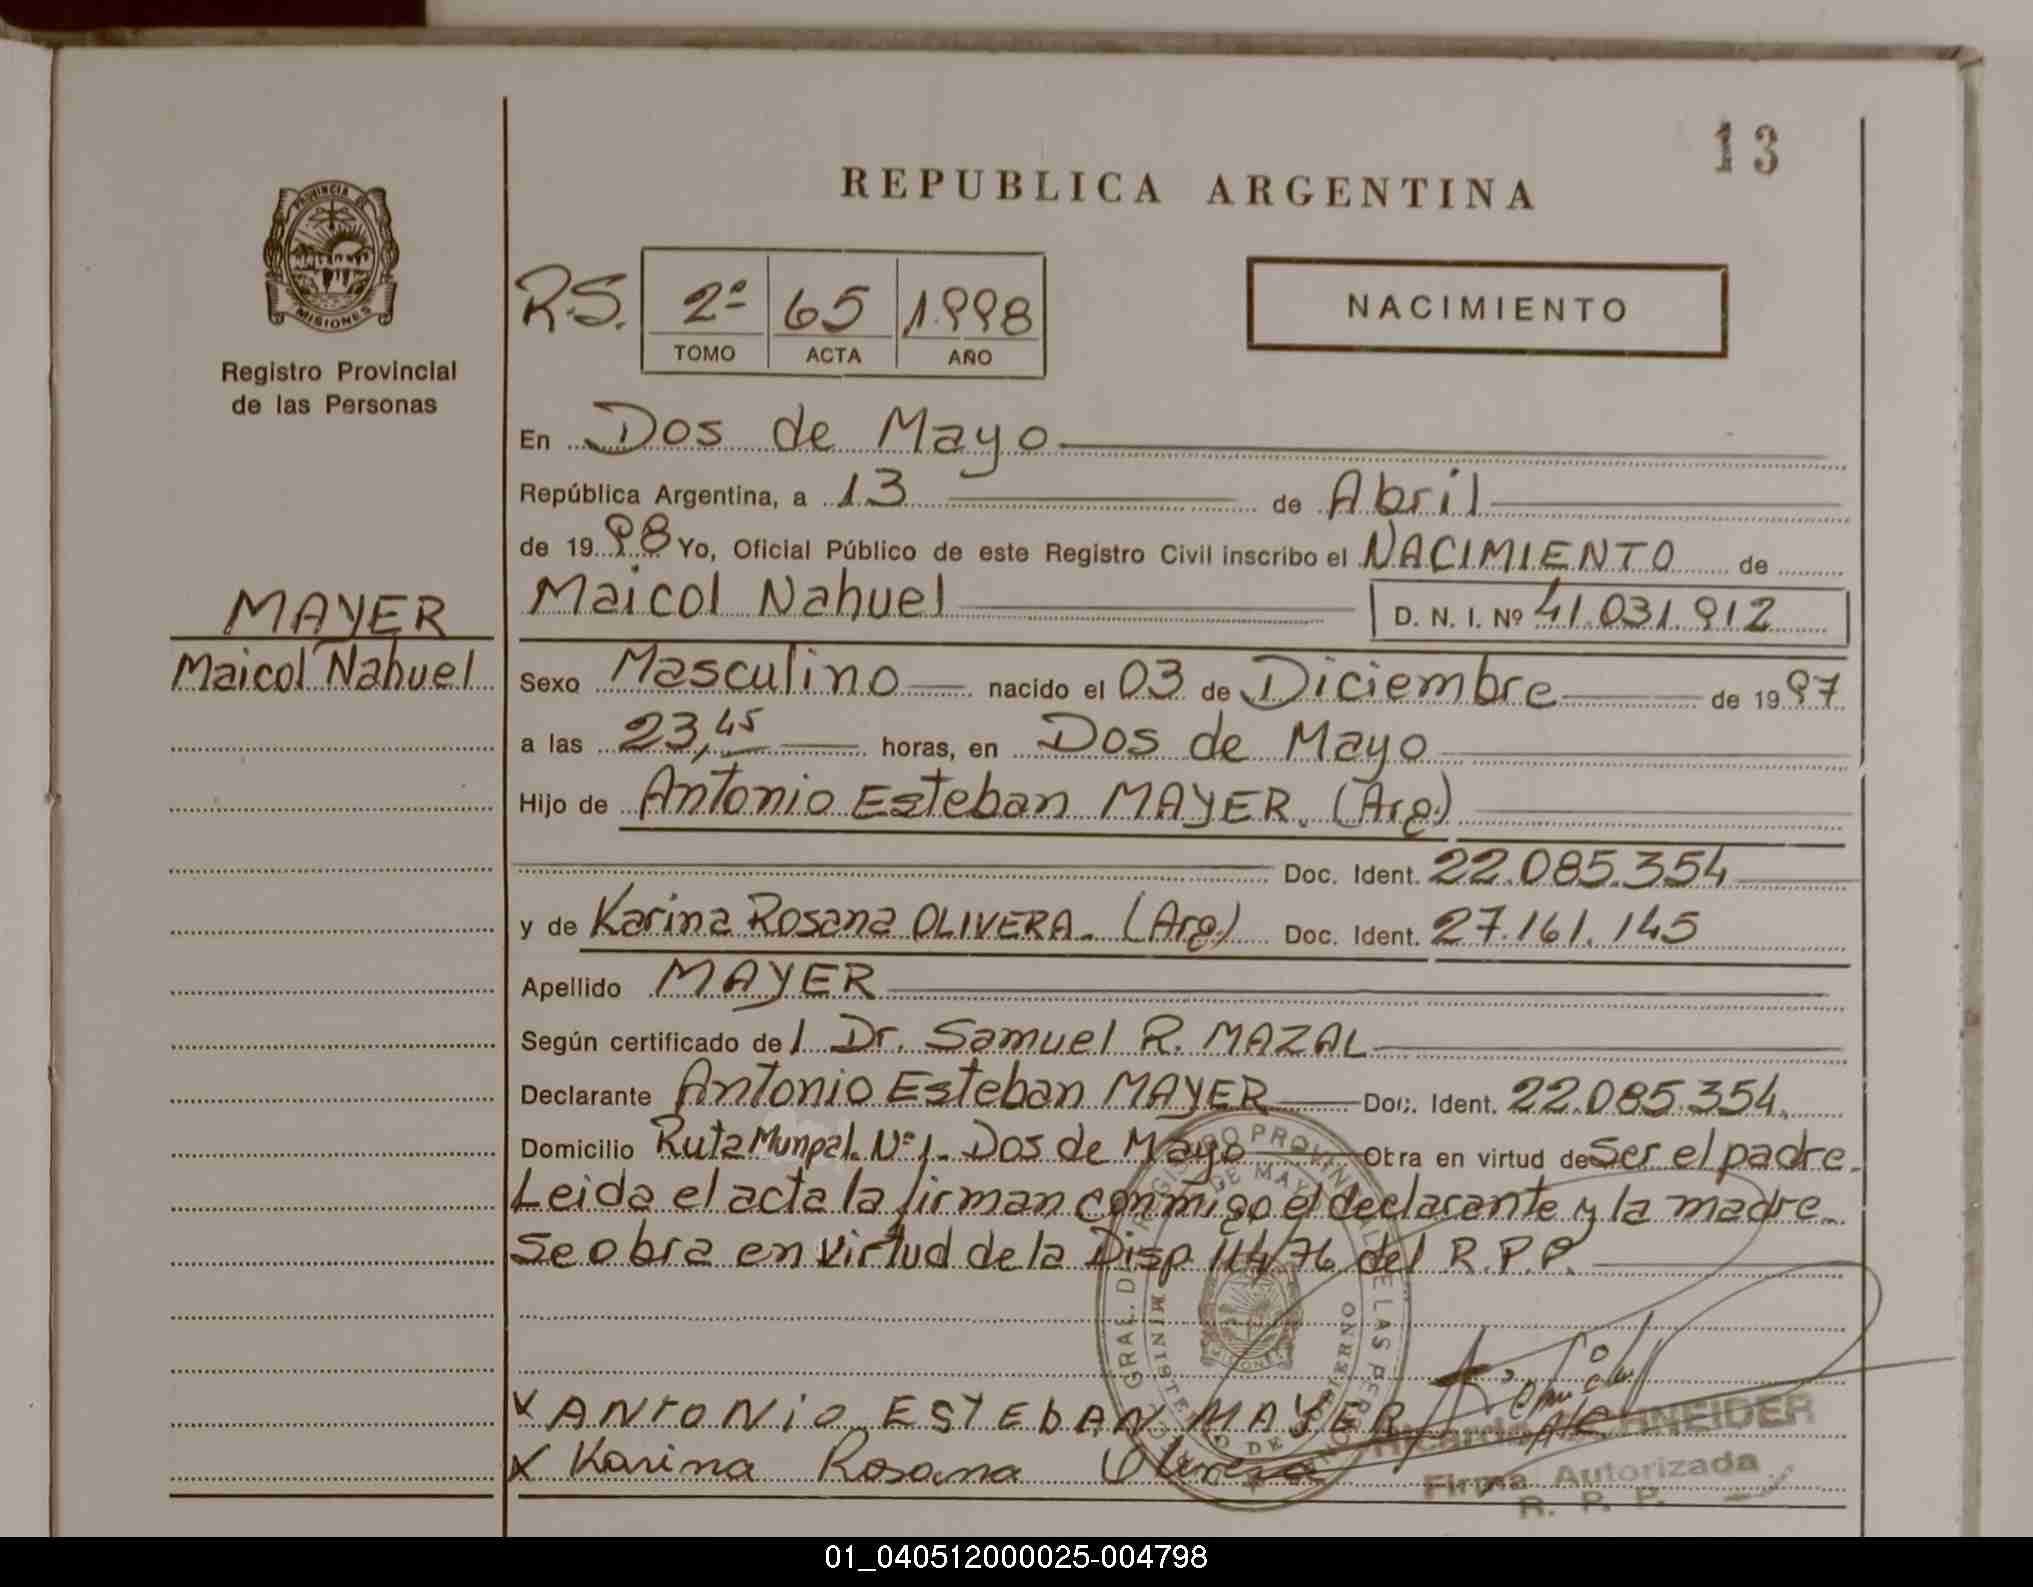 13
REPUBLICA ARGENTINA
PROVINCIA DE
MISIONES
Registro Provincial
de las Personas
R.S. 2º 65 1998
TOMO ACTA AÑO
NACIMIENTO
En Dos de Mayo
República Argentina, a 13 de Abril
de 1998 Yo, Oficial Público de este Registro Civil inscribo el NACIMIENTO de
MAYER
Maicol Nahuel
Maicol Nahuel D. N. I. Nº 41.031.912
Sexo Masculino nacido el 03 de Diciembre de 1997
a las 23,45 horas, en Dos de Mayo
Hijo de Antonio Esteban MAYER. (Arg.)
Doc. Ident. 22.085.354
y de Karina Rosana OLIVERA. (Arg.) Doc. Ident. 27.161.145
Apellido MAYER
Según certificado de l Dr. Samuel R. MAZAL
Declarante Antonio Esteban MAYER Doc. Ident. 22.085.354.
Domicilio Ruta Munpal. Nº 1. Dos de Mayo Obra en virtud de Ser el padre.
Leida el acta la firman conmigo el declarante y la madre.
Se obra en virtud de la Disp. 114/76 del R.P.P.
x ANTONIO ESTEBAN MAYER
x Karina Rosana Olivera
Ricardo SCHNEIDER
Firma Autorizada
R. P. P.
01_040512000025-004798